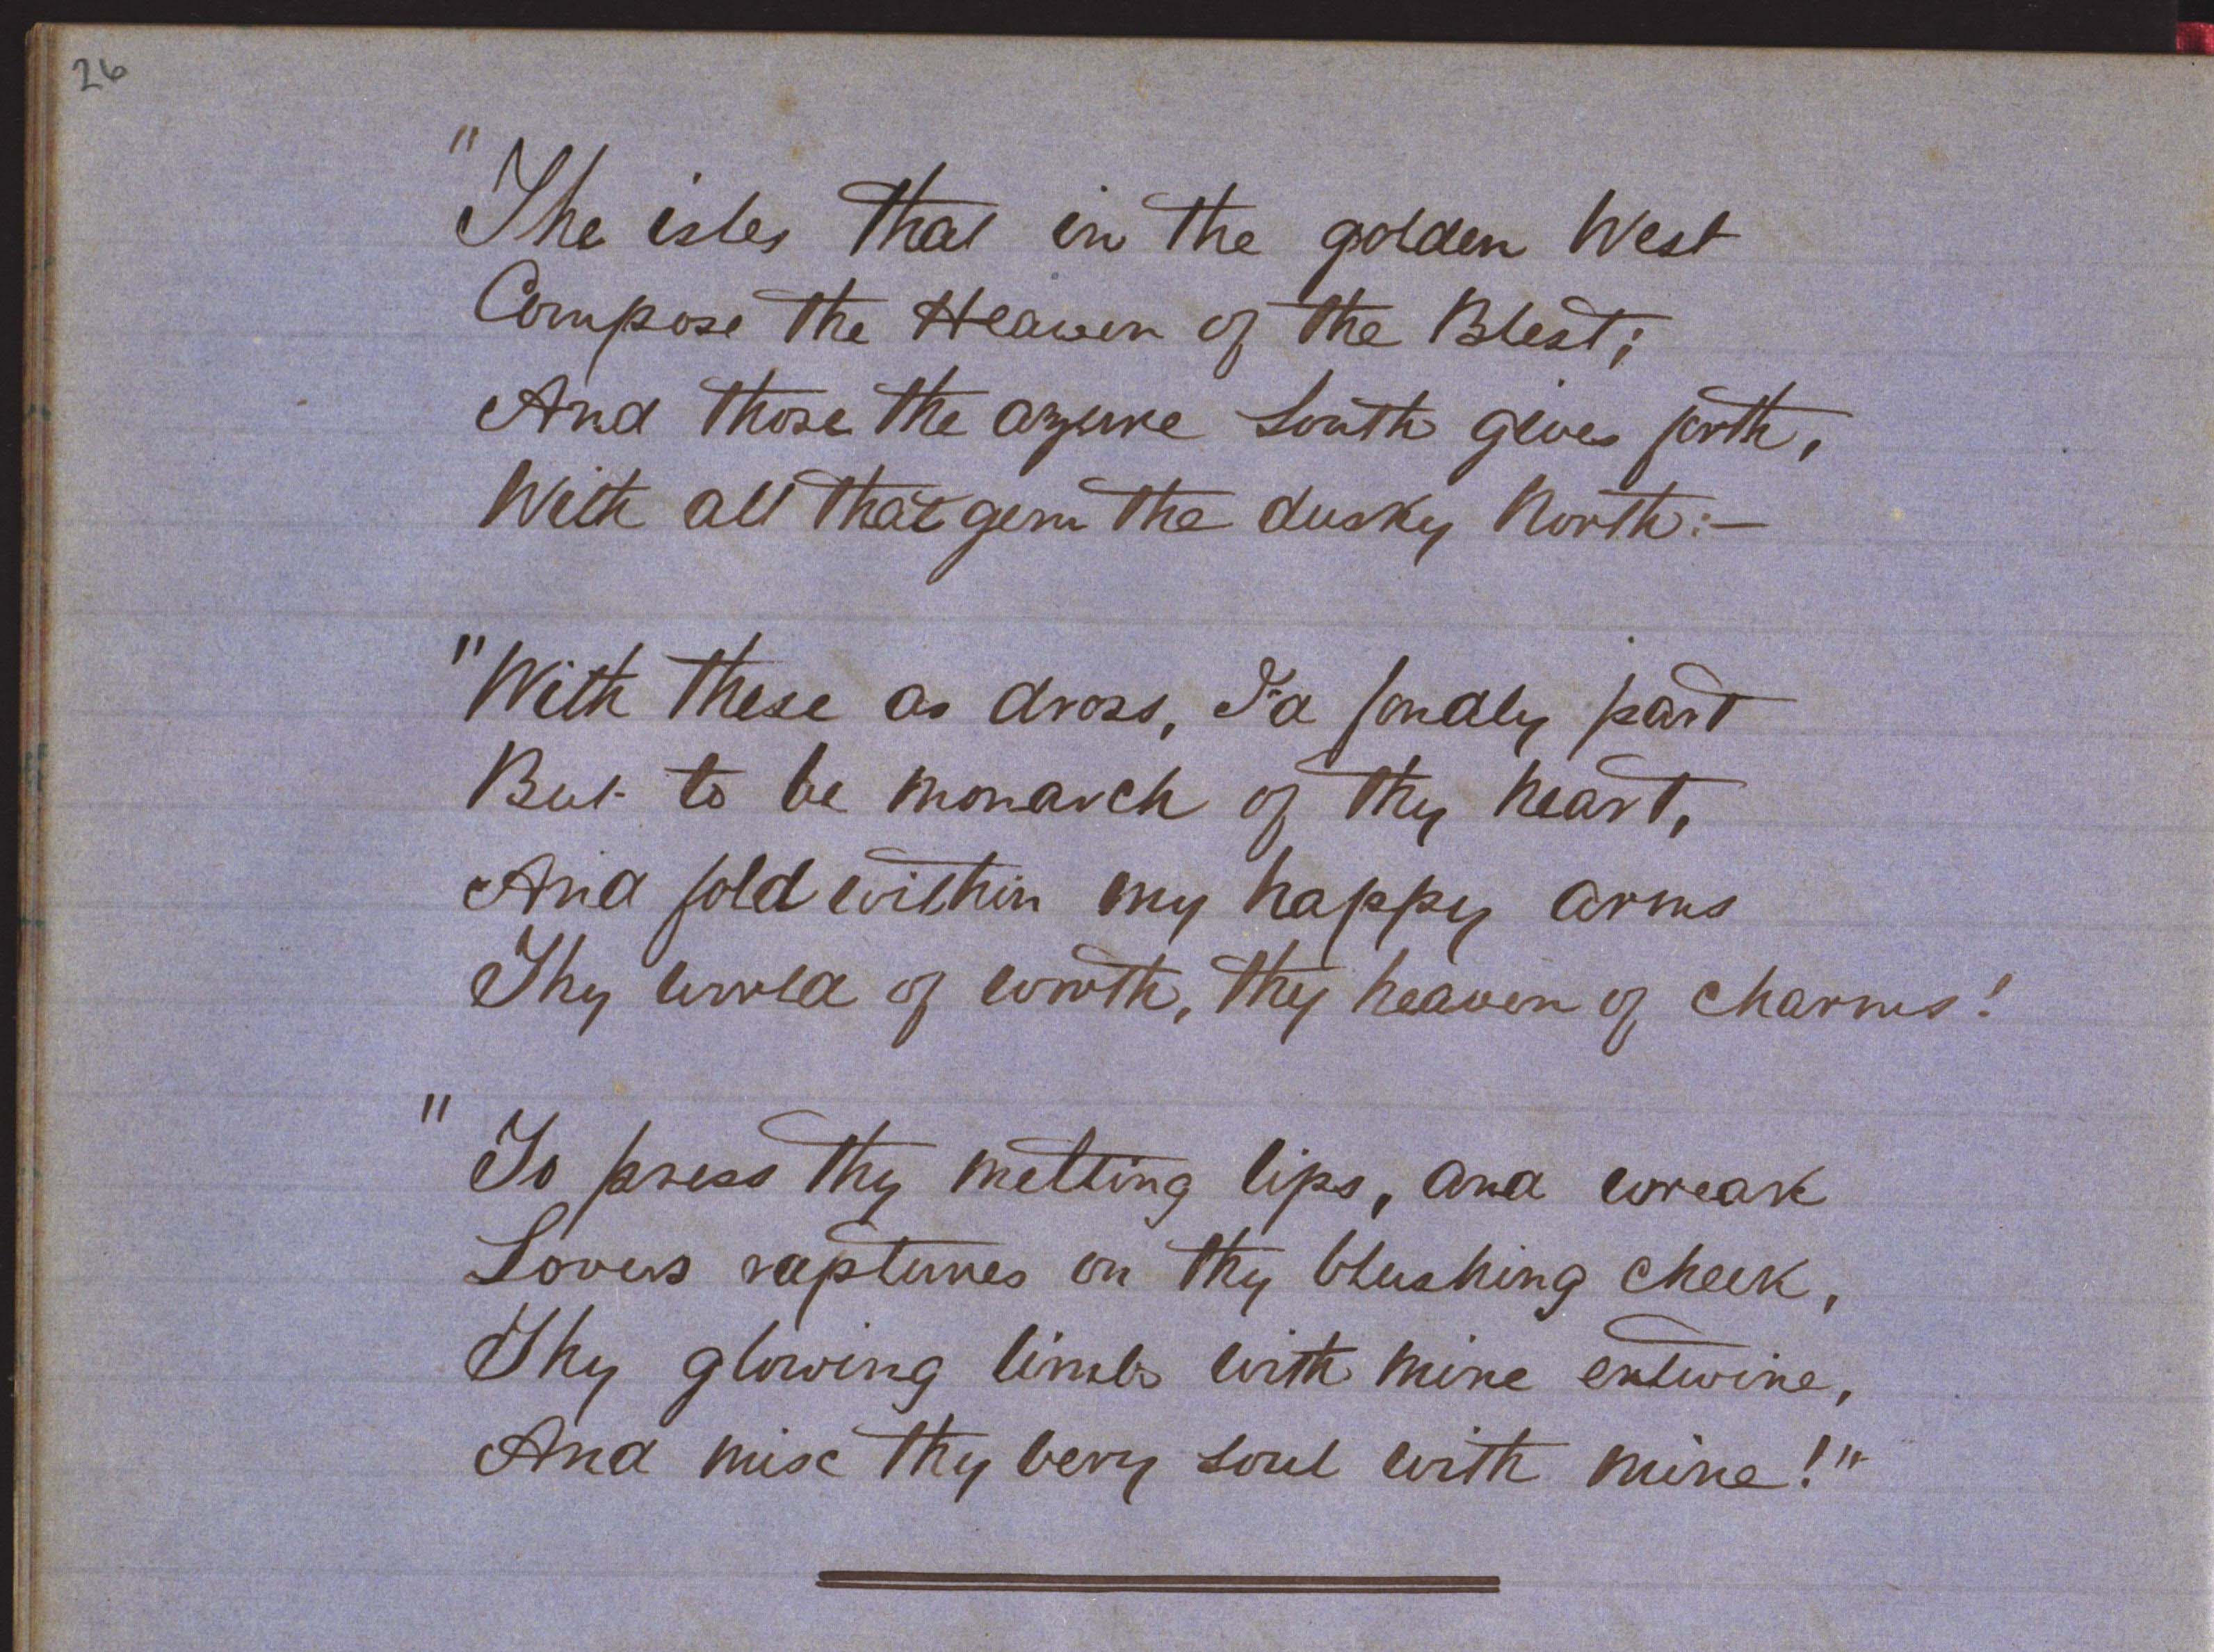 26
"The isles that in the golden West
Compose the Heaven of the Blest;
And those the azure South gives forth,
With all that gem the dusky North:—
"With these as dross, I'd fondly part
But to be monarch of thy heart,
And fold within my happy arms
Thy world of worth, thy heaven of charms!
"To press thy melting lips, and wreak
Loves raptures on thy blushing cheek,
Thy glowing limbs with mine entwine,
And mix thy very soul with mine!"